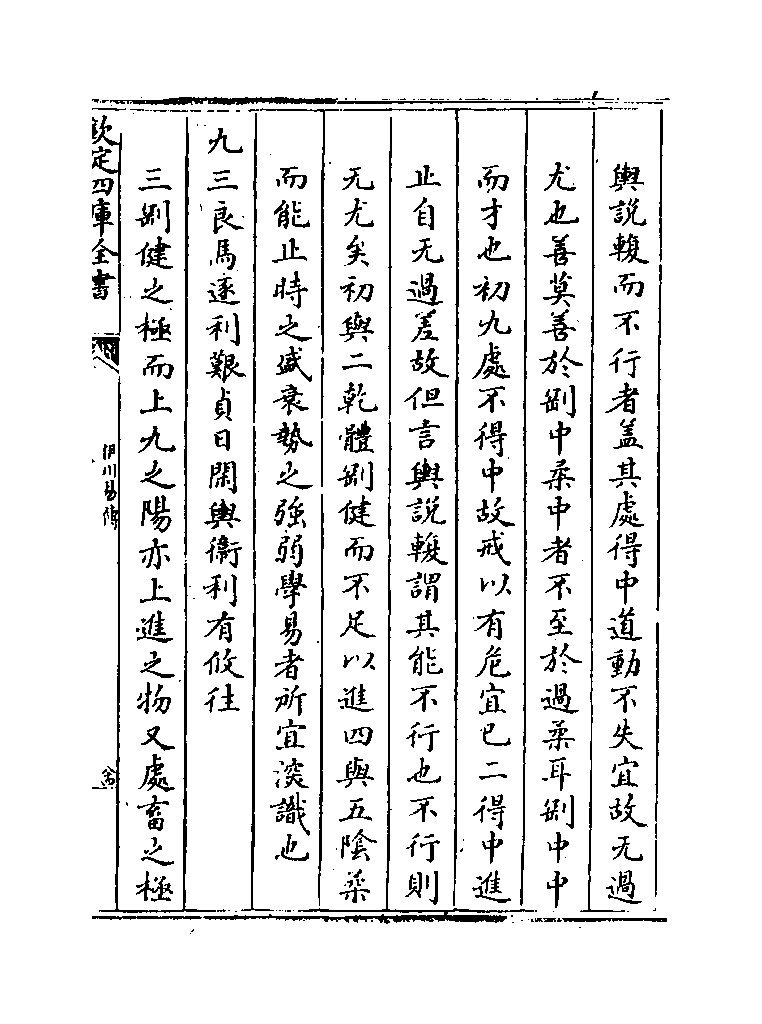 輿說輹而不行者盖其處得中道動不失宜故无過
尤也善莫善於剛中柔中者不至於過柔耳剛中中
而才也初九處不得中故戒以有危宜已二得中進
止自无過差故但言輿說輹謂其能不行也不行則
无尤矣初與二乾體剛健而不足以進四與五隂柔
而能止時之盛衰勢之強弱學易者所宜深識也
九三良馬逐利艱貞日閑輿衞利有攸往
三剛健之極而上九之陽亦上進之物又處畜之極
欽定四庫全書
伊川易傳